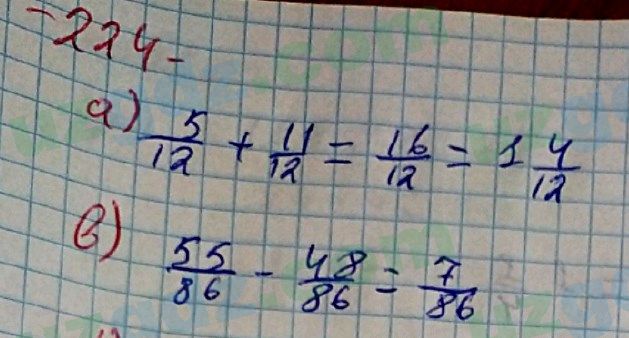 -224-
а) 5/12 + 11/12 = 16/12 = 1 4/12
в) 55/86 - 48/86 = 7/86